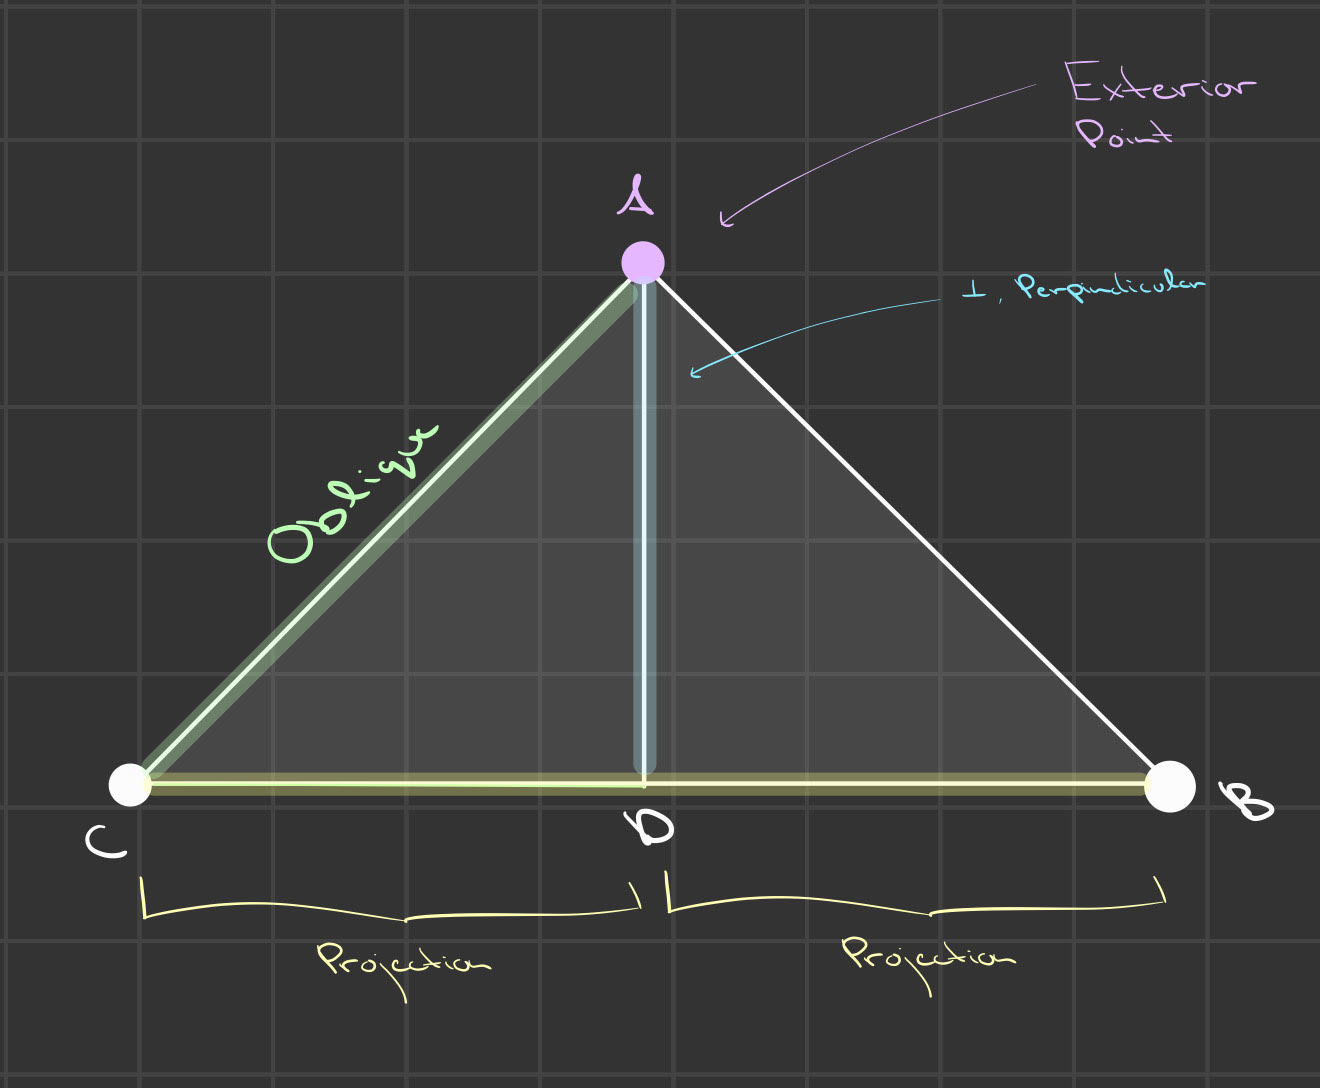 Exterior
Point
A
⊥, Perpindicular
Oblique
C
D
B
Projection
Projection